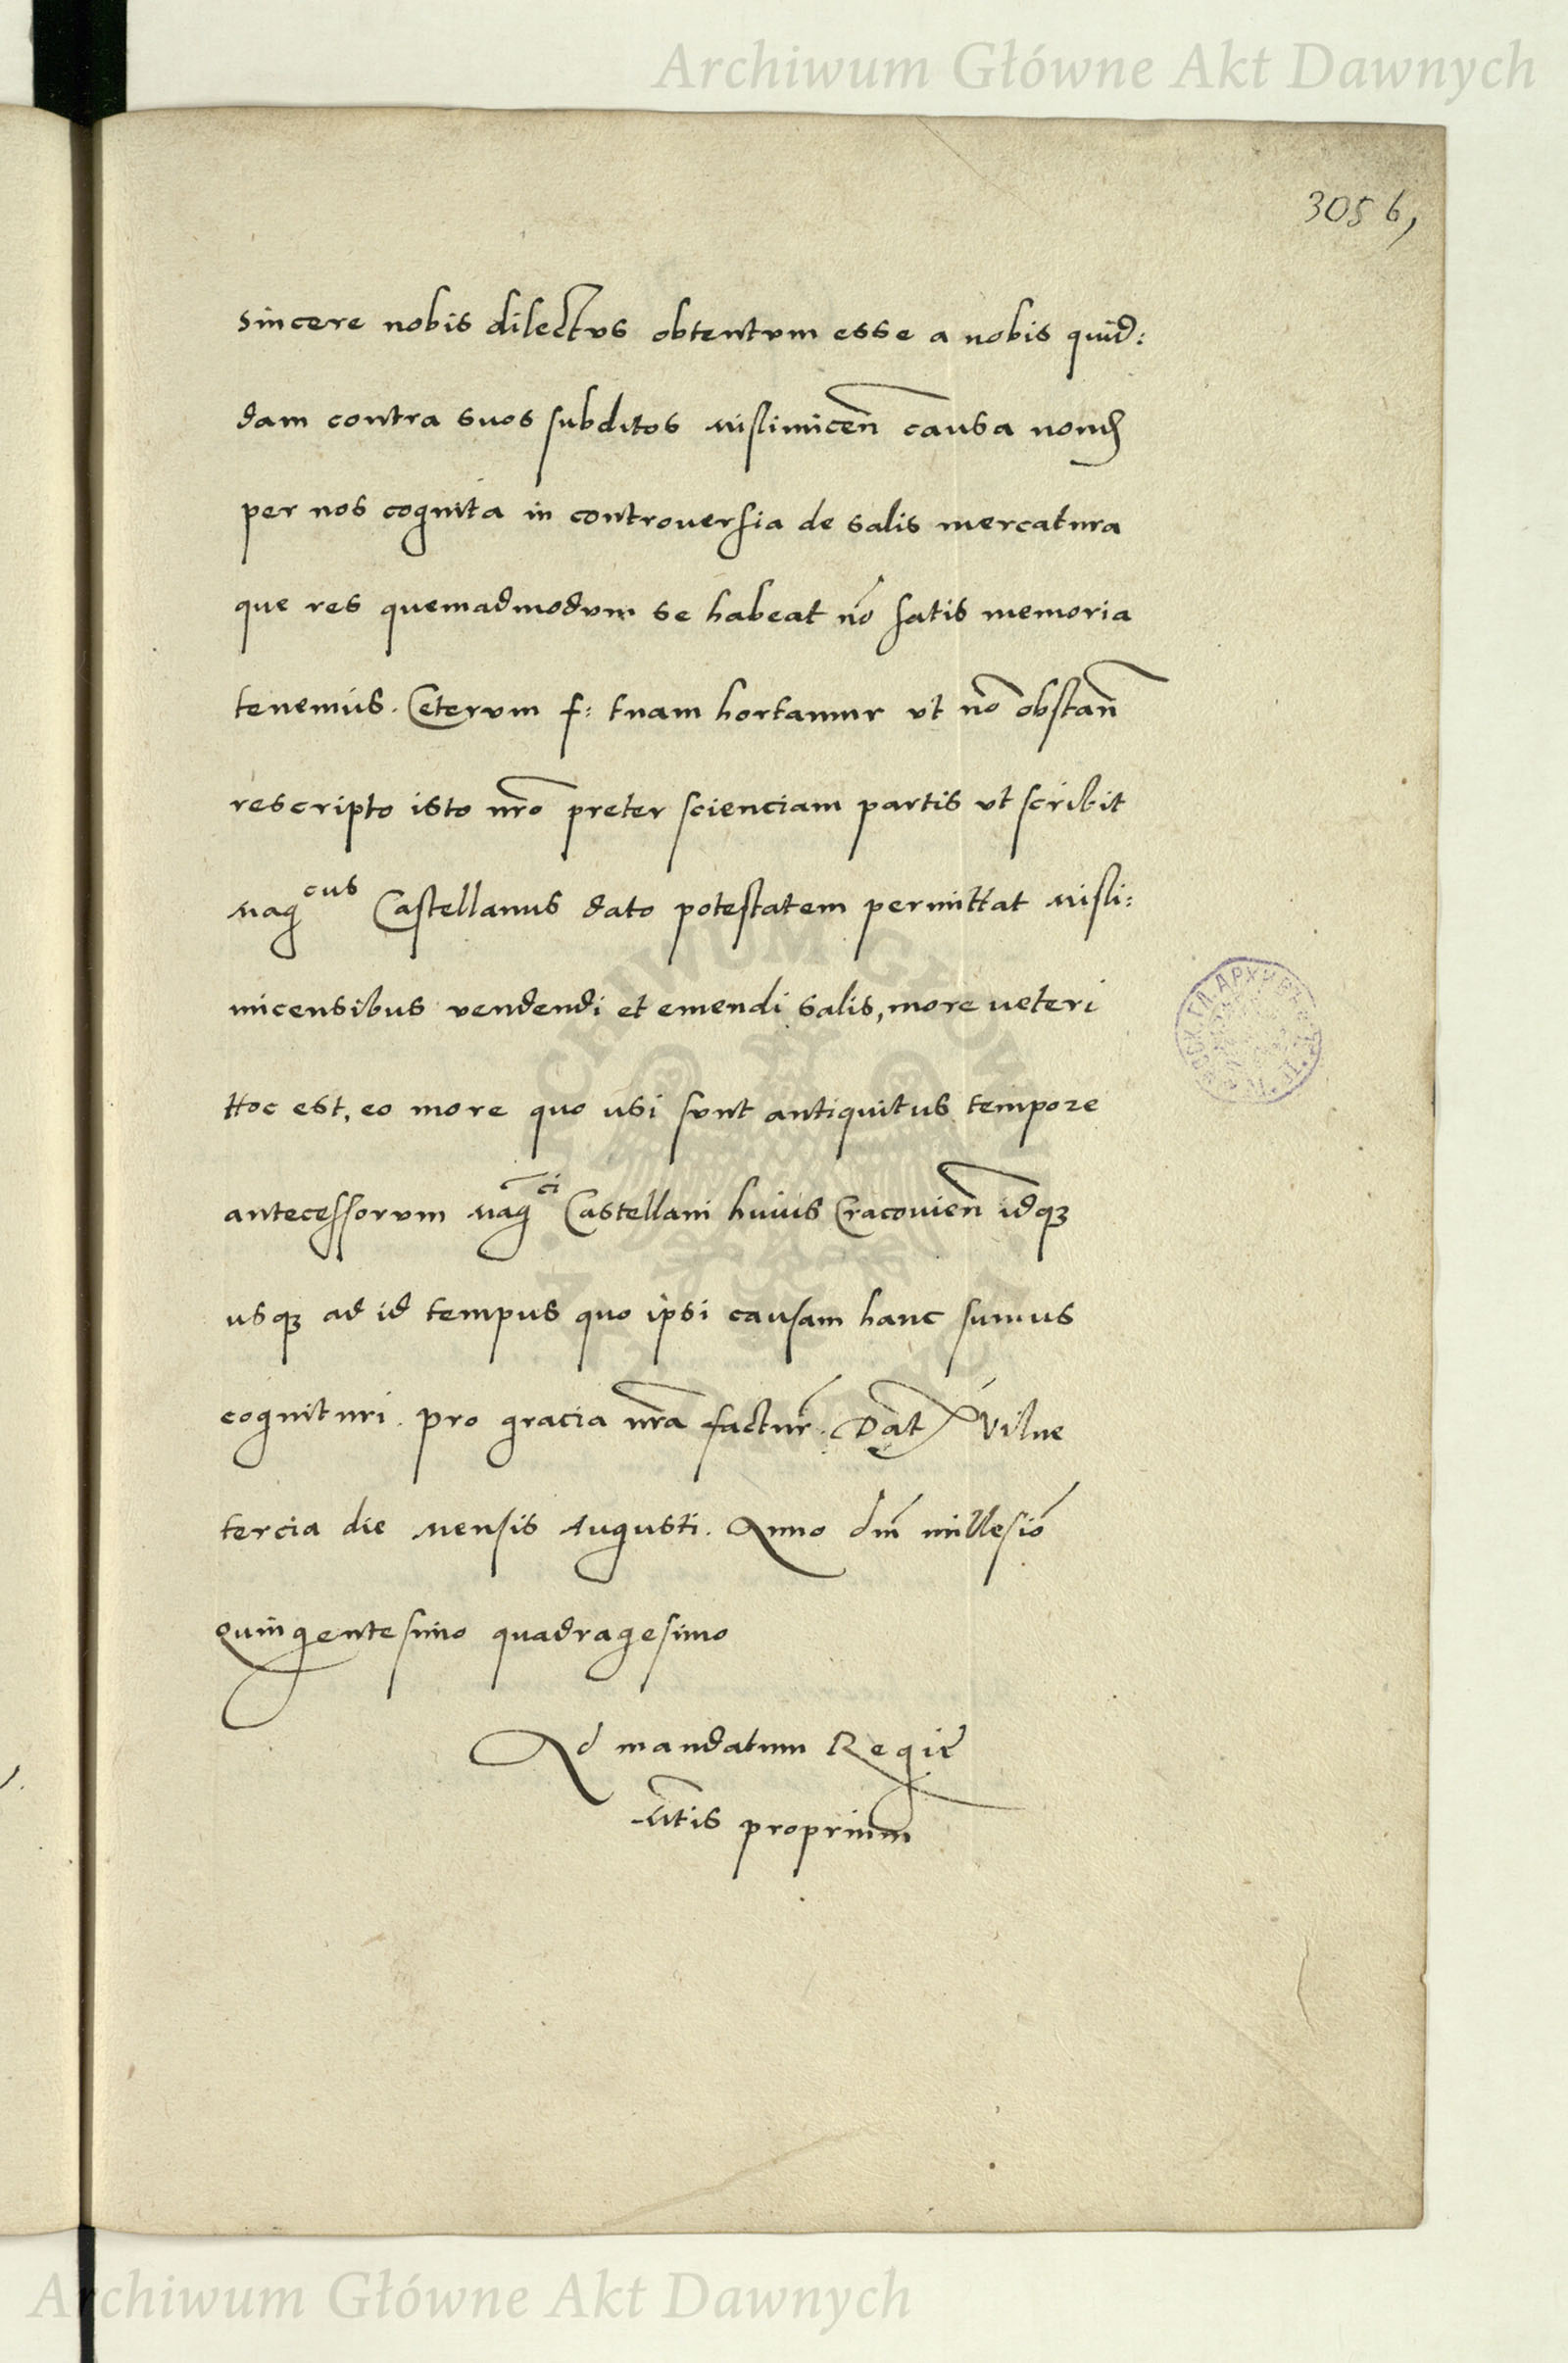 Archiwum Główne Akt Dawnych
3056,
sincere nobis dilectus obtentum esse a nobis quid:
dam contra suos subditos Mislimicen̄ causa nond
per nos cognita in controuersia de salis mercatura
que res quemadmodum se habeat nō satis memoria
tenemus. Ceterum f: tuam hortamur ut nō obstan̄
rescripto isto nr̄o preter scienciam partis ut scribit
Magcus Castellanus dato potestatem permittat Misli:
micensibus vendendi et emendi salis, more ueteri
Hoc est, eo more quo usi sunt antiquitus tempore
antecessorum Magci Castellani huius Cracouien̄ idqꝫ
usqꝫ ad id tempus quo ipsi causam hanc sumus
cognituri. pro gracia nr̄a factur̄. Dat̄ Vilne
tercia die Mensis Augusti. Anno dn̄i millesiō
Quingentesimo quadragesimo
Ad mandatum Regie
Mt̄is proprium
Archiwum Główne Akt Dawnych